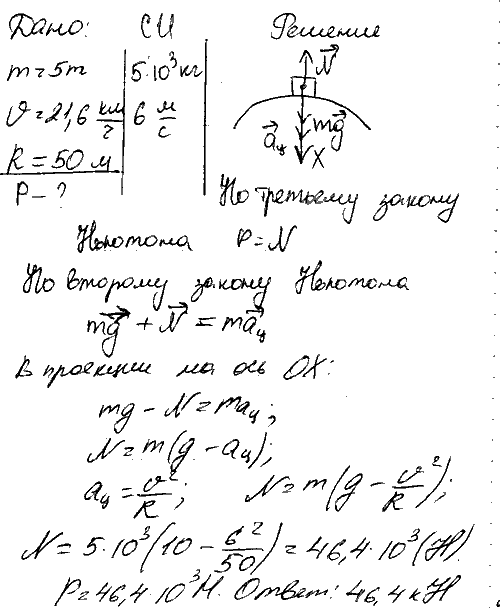 Дано: СИ Решение
m=5т 5·10³кг N⃗
υ=21,6 км/г 6 м/с
a⃗ц mg⃗
R=50м X
P-?
По третьему закону
Ньютона P=N
По второму закону Ньютона
mg⃗+N⃗=ma⃗ц
в проекции на ось OX:
mg-N=maц;
N=m(g-aц);
aц=υ²/R; N=m(g-υ²/R);
N=5·10³(10-6²/50)=46,4·10³(Н).
P=46,4·10³Н. Ответ: 46,4кН